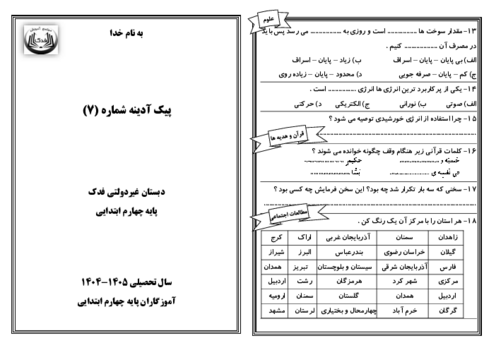 به نام خدا
پیک آدینه شماره (۷)
دبستان غیردولتی فدک
پایه چهارم ابتدایی
سال تحصیلی ۱۴۰۵-۱۴۰۴
آموزگاران پایه چهارم ابتدایی
علوم
۱۳- مقدار سوخت ها .............. است و روزی به .............. می رسد پس باید
در مصرف آن .............. کنیم .
الف) بی پایان - پایان - اسراف ب) زیاد - پایان - اسراف
ج) کم - پایان - صرفه جویی د) محدود - پایان - زیاده روی
۱۴- یکی از پر کاربرد ترین انرژی ها انرژی .............. است .
الف) صوتی ب) نورانی ج) الکتریکی د) حرکتی
۱۵- چرا استفاده از انرژی خورشیدی توصیه می شود ؟
قرآن و هدیه ها
۱۶- کلمات قرآنی زیر هنگام وقف چگونه خوانده می شوند ؟
۱۷- سخنی که سه بار تکرار شد چه بود؟ این سخن فرمایش چه کسی بود ؟
مطالعات اجتماعی
۱۸- هر استان را با مرکز آن یک رنگ کن .
زاهدان سمنان آذربایجان غربی اراک کرج
گیلان خراسان رضوی بندرعباس البرز شیراز
فارس آذربایجان شرقی سیستان و بلوچستان تبریز همدان
مرکزی شهر کرد هرمزگان رشت اردبیل
اردبیل همدان گلستان سمنان ارومیه
گرگان خرم آباد چهارمحال و بختیاری لرستان مشهد